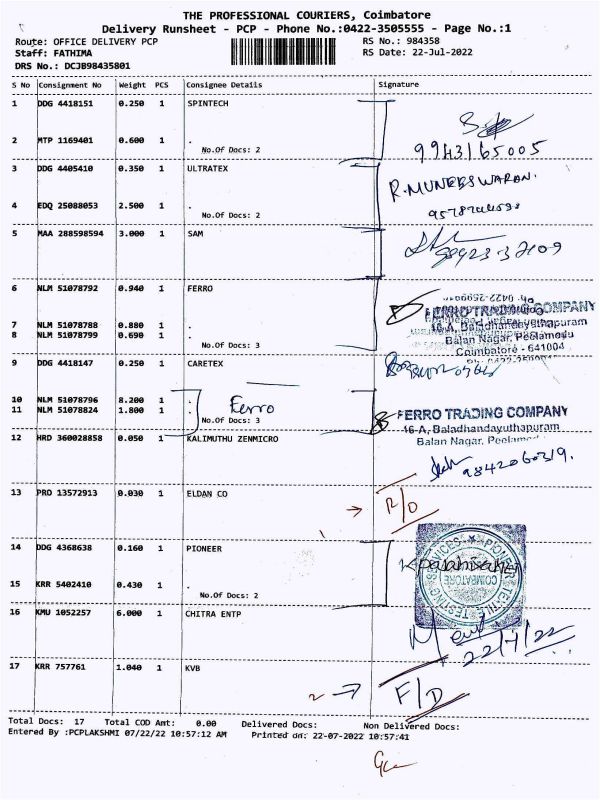 THE PROFESSIONAL COURIERS, Coimbatore
Delivery Runsheet - PCP - Phone No.:0422-3505555 - Page No.:1
Route: OFFICE DELIVERY PCP RS No.: 984358
Staff: FATHIMA RS Date: 22-Jul-2022
DRS No.: DCJB98435801
S No Consignment No Weight PCS Consignee Details Signature
1 DDG 4418151 0.250 1 SPINTECH
2 MTP 1169401 0.600 1 .
No.Of Docs: 2
9943165005
3 DDG 4405410 0.350 1 ULTRATEX
R.MUNEESWARAN.
4 EDQ 25088053 2.500 1 .
No.Of Docs: 2
5 MAA 288598594 3.000 1 SAM
6 NLM 51078792 0.940 1 FERRO
7 NLM 51078788 0.880 1 .
8 NLM 51078799 0.690 1 .
No.Of Docs: 3
FERRO TRADING COMPANY
16-A, Baladhandayuthapuram
Balan Nagar, Peelamedu
Coimbatore - 641004
9 DDG 4418147 0.250 1 CARETEX
10 NLM 51078796 8.200 1 .
11 NLM 51078824 1.800 1 .
Ferro
No.Of Docs: 3
FERRO TRADING COMPANY
16-A, Baladhandayuthapuram
Balan Nagar, Peelamed
12 HRD 360028858 0.050 1 KALIMUTHU ZENMICRO
9842060319.
13 PRD 13572913 0.030 1 ELDAN CO
R/D
14 DDG 4368638 0.160 1 PIONEER
15 KRR 5402410 0.430 1 .
No.Of Docs: 2
PIONEER TEXTILE TESTING SERVICES
COIMBATORE
16 KMU 1052257 6.000 1 CHITRA ENTP
22/7/22
17 KRR 757761 1.040 1 KVB
2 → F/D
Total Docs: 17 Total COD Amt: 0.00 Delivered Docs: Non Delivered Docs:
Entered By :PCPLAKSHMI 07/22/22 10:57:12 AM Printed on: 22-07-2022 10:57:41